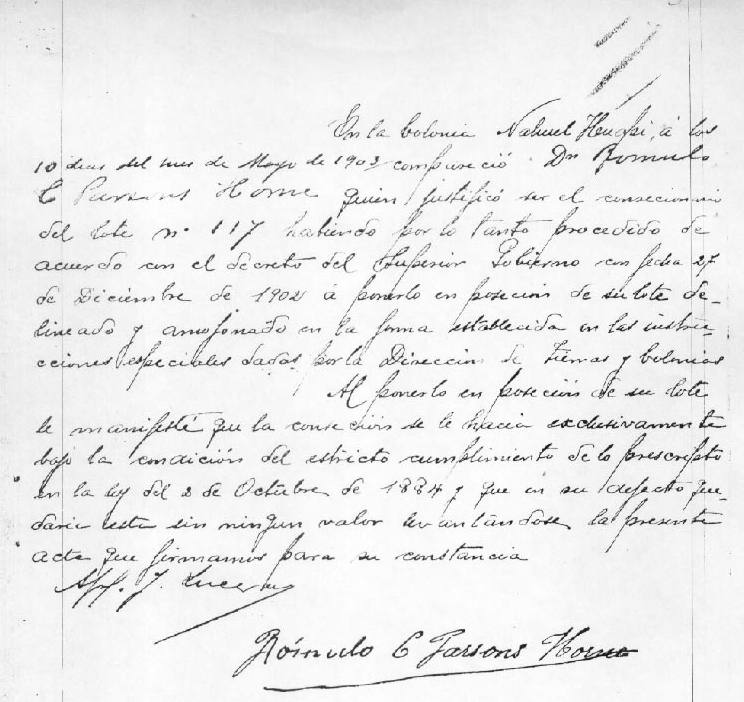 En la Colonia Nahuel Huapi, á los
10 dias del mes de Mayo de 1903 compareció Dn Romulo
C Parsons Horne quien justificó ser el consecionario
del lote no 117 habiendo por lo tanto procedido de
acuerdo con el decreto del Superior Gobierno con fecha 27
de Diciembre de 1902 á ponerlo en poseción de su lote de-
lineado y amojonado en la forma establecida en las instru-
cciones especiales dadas por la Direccion de Tierras y Colonias
Al ponerlo en poseción de su lote
le manifesté que la conseción se le hacia exclusivamente
bajo la condición del estricto cumplimiento de lo prescripto
en la ley del 2 de Octubre de 1884 y que en su defecto que-
daria esta sin ningun valor levantándose la presente
acta que firmamos para su constancia
J. Lucero
Rómulo C Parsons Horne